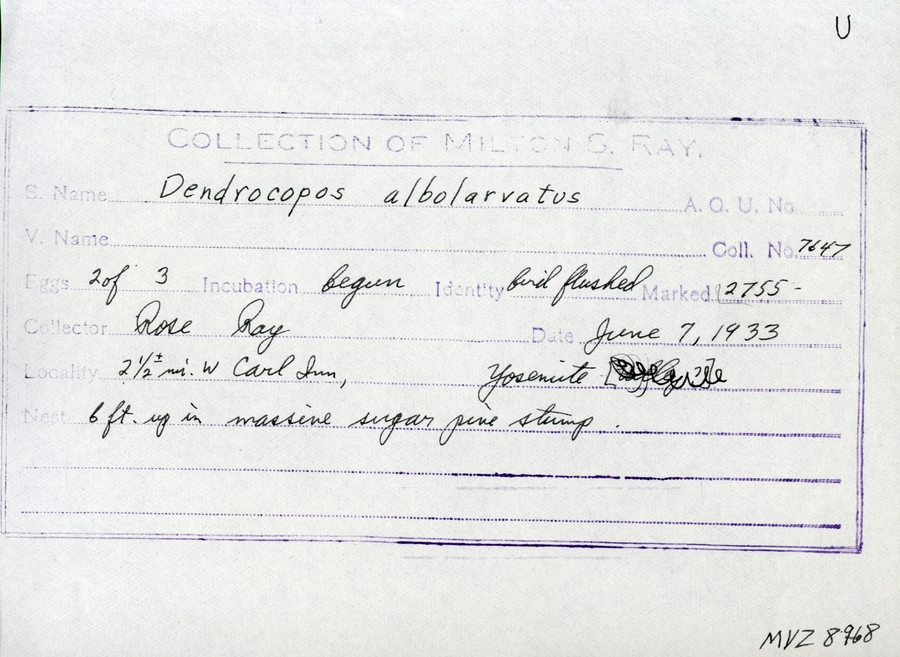 U
COLLECTION OF MILTON S. RAY.
S. Name Dendrocopos albolarvatus A. O. U. No.
V. Name Coll. No. 7647
Eggs 2 of 3 Incubation begun Identity bird flushed Marked 2755-
Collector Rose Ray Date June 7, 1933
Locality 2 1/2 ± mi. W Carl Inn, Yosemite
Nest 6 ft. up in massive sugar pine stump.
MVZ 8968